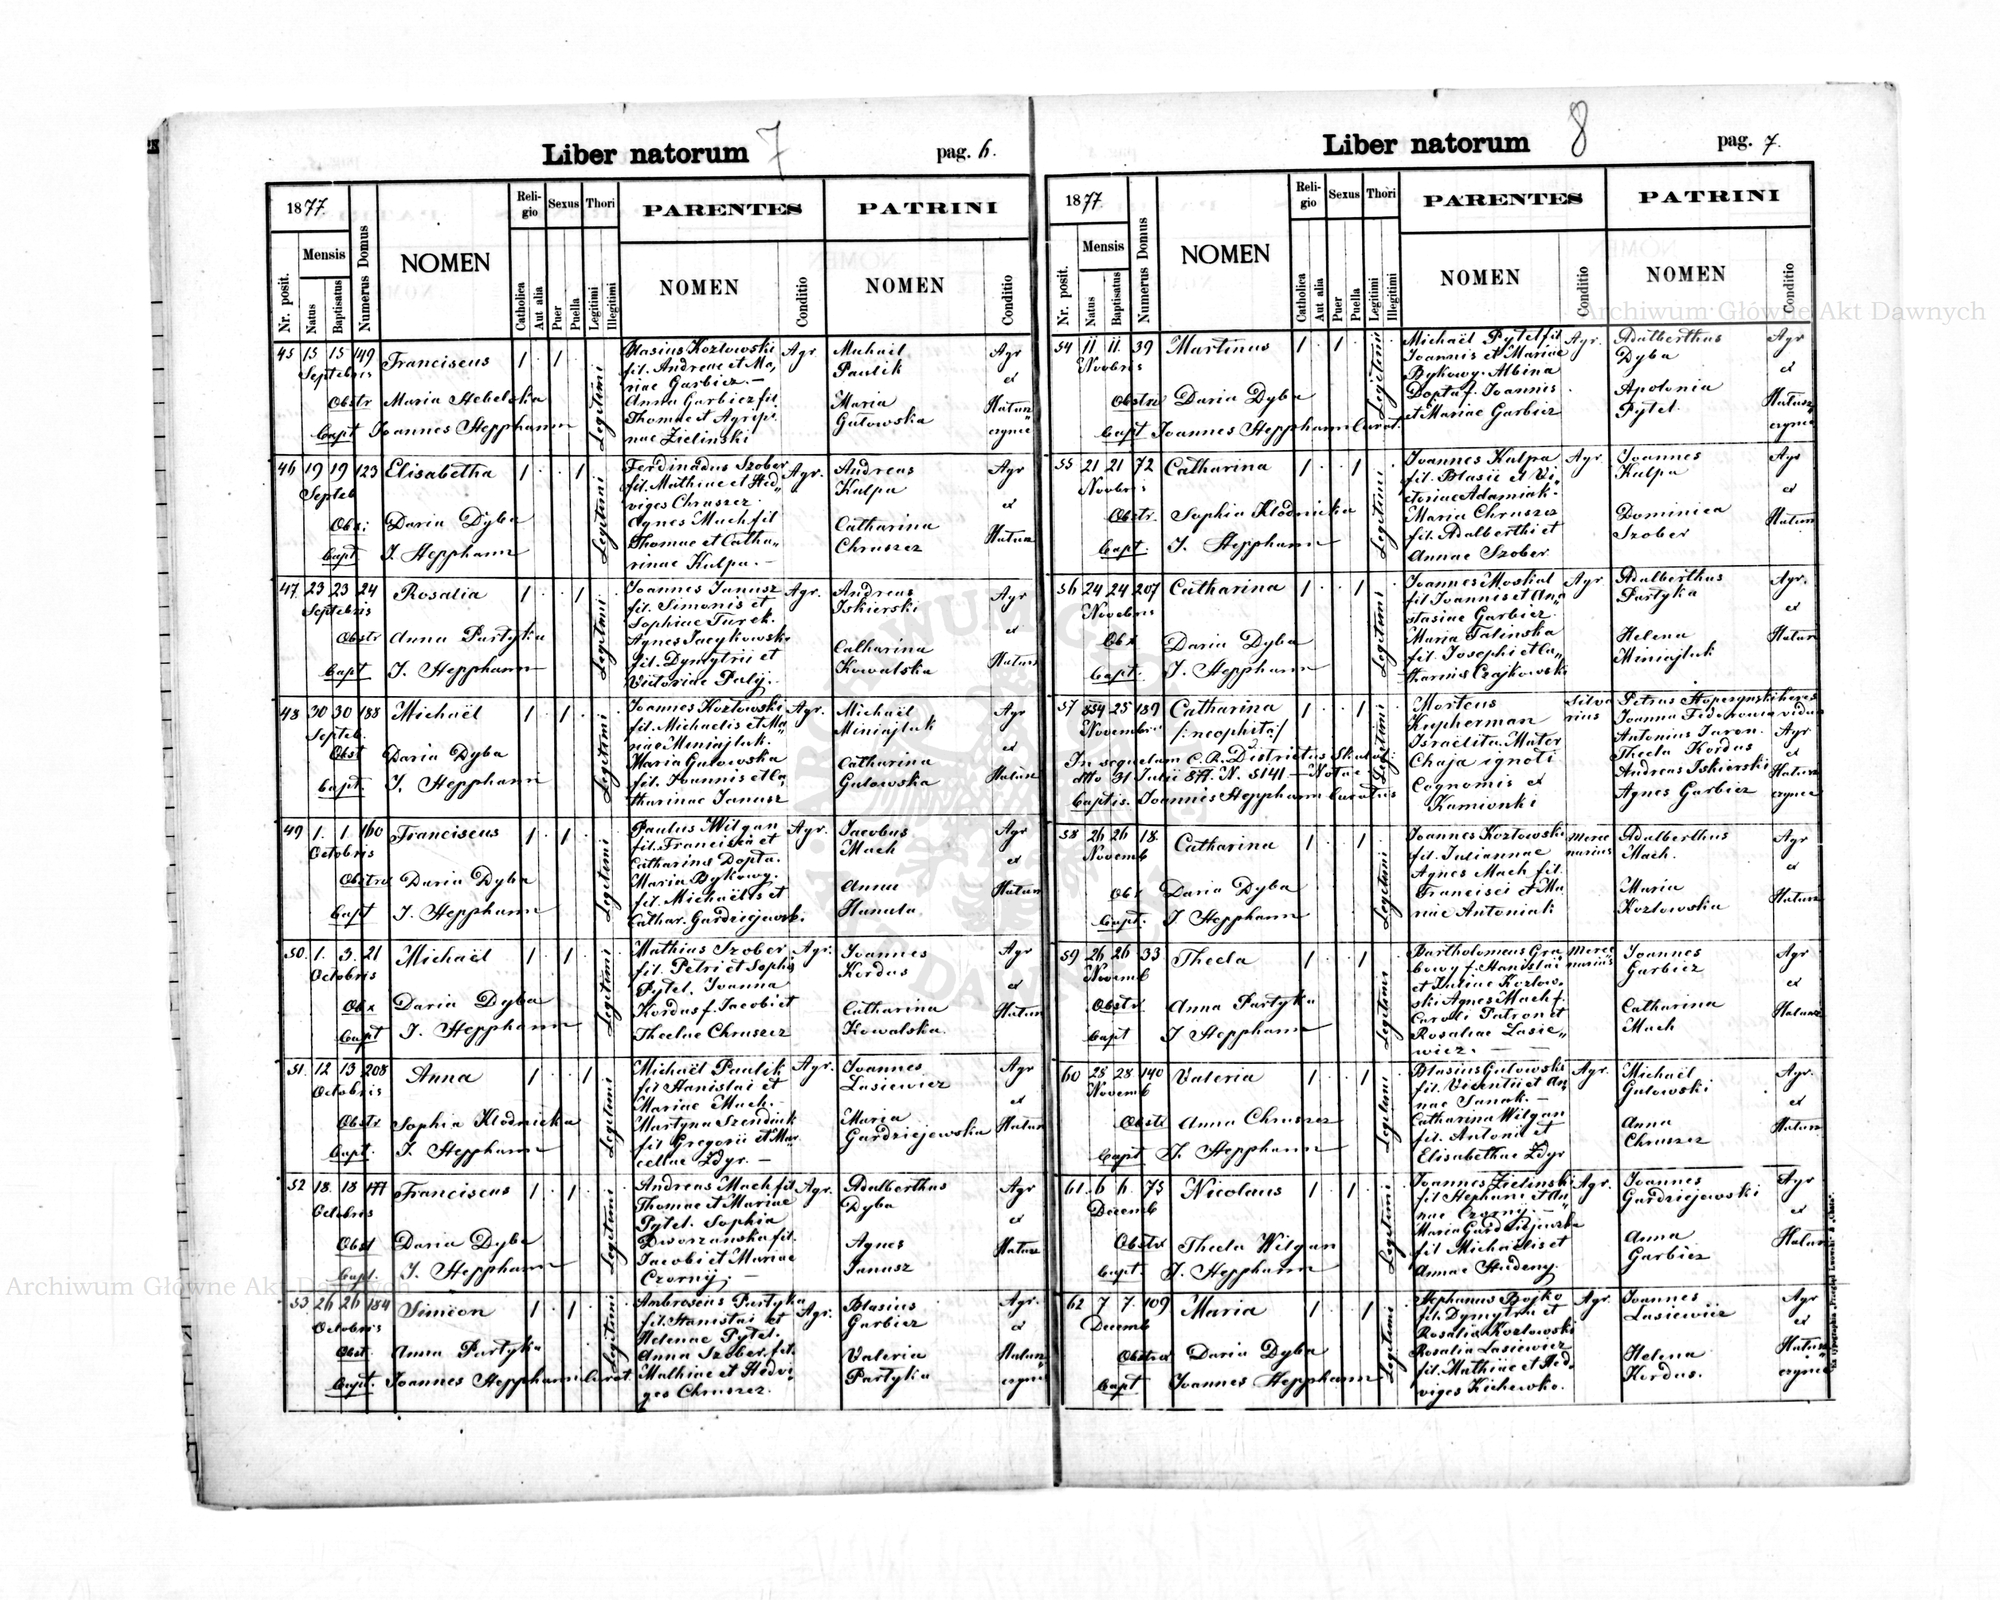 Liber natorum 7 pag. 6.
1877.
Nr. posit.
Mensis
Natus
Baptisatus
Numerus Domus
NOMEN
Religio
Catholica
Aut alia
Sexus
Puer
Puella
Thori
Legitimi
Illegitimi
PARENTES
NOMEN
Conditio
PATRINI
NOMEN
Conditio
45 15 15 149
Septebris
Franciscus 1 . 1
Legitimi
Blasius Kozlowski
fil. Andreae et Ma,
riae Garbicz.—
Anna Garbicz fil
Thomae et Agripi
nae Zielinski
Agr
Michaël
Paulik
Maria
Gutowska
Agr
et
Obstr Maria Stebelska
Bapt Joannes Hepphann
46 19 19 123
Septeb
Elisabetha 1 . . 1
Legitimi
Ferdinadus Szober
fil. Mathiae et Hed„
viges Chruszcz.
Agnes Mach fil
Thomae et Catha„
rinae Kulpa.—
Agr.
Andreas
Kulpa
Catharina
Chruszcz
Agr
et
Obs: Daria Dyba
Bapt J. Hepphann
47 23 23 24
Septebris
Rosalia 1 . . 1
Legitimi
Joannes Janusz
fil. Simonis et
Sophiae Turek.
Agnes Jacykowski
fil. Dymytrii et
Victoriae Paly.
Agr.
Andreas
Iskierski
Catharina
Kowalska
Agr
et
Obstr Anna Partyka
Bapt J. Hepphann
48 30 30 188
Septeb.
Michaël 1 . 1
Legitimi
Joannes Kozlowski
fil. Michaelis et Ma„
riae Miniajluk.
Maria Gutowska
fil. Joannis et Ca
tharinae Janusz
Agr.
Michaël
Miniajluk
Catharina
Gutowska
Agr
et
Obst Daria Dyba
Bapt. J. Hepphann
49 1. 1. 160
Octobris
Franciscus 1 . 1
Legitimi
Paulus Wilgan
fil. Franciska et
Catharina Dopta.
Maria Bykowy.
fil. Michaëlis et
Cathar. Gardziejewski.
Agr.
Jacobus
Mach
Anna
Hanula
Agr
et
Obstrx Daria Dyba
Bapt J. Hepphann
50 1. 3. 21
Octobris
Michaël 1 . 1
Legitimi
Mathias Szober
fil. Petri et Sophi
Pytel. Joanna
Kordas f. Jacobi et
Theclae Chruszcz
Agr.
Joannes
Kordas
Catharina
Kowalska.
Agr
et
Obx Daria Dyba
Bapt J. Hepphann
51. 12 13. 208
Octobris
Anna 1 . . 1
Legitimi
Michaël Paulik
fil Stanislai et
Mariae Mach.—
Martyna Szendiuk
fil Gregorii et Mar
cellae Zdyr.—
Agr.
Joannes
Lasiewicz
Maria
Gardziejewska
Agr
et
Obstr Sophia Klodnicka
Bapt. J. Hepphann
52 18. 18 177
Octobris
Franciscus 1 . 1
Legitimi
Andreas Mach fil
Thomae et Mariae
Pytel. Sophia
Dworzanska fil.
Jacobi et Mariae
Czorny.—
Agr.
Adalberthus
Dyba
Agnes
Janusz
Agr
et
Obst Daria Dyba
Bapt. J. Hepphann
53 26 26 184
Octobris
Simeon 1 . 1
Legitimi
Ambrosius Partyka
fil. Stanislai et
Helenae Pytel.
Anna Szober fil.
Mathiae et Hedvi„
ges Chruszcz.
Agr.
Blasius
Garbicz
Valeria
Partyka
Agr.
et
Obst. Anna Partyka
Bapt. Joannes Hepphann Curat.
Liber natorum 8 pag. 7.
1877
Nr. posit.
Mensis
Natus
Baptisatus
Numerus Domus
NOMEN
Religio
Catholica
Aut alia
Sexus
Puer
Puella
Thori
Legitimi
Illegitimi
PARENTES
NOMEN
Conditio
PATRINI
NOMEN
Conditio
54 11 11. 39
Novbris
Martinus 1 . 1
Legitimi
Michaël Pytel fil
Joannis et Mariae
Bykowy. Albina
Dopta f. Joannis
et Mariae Garbicz
Agr.
Adalberthus
Dyba
Apolonia
Pytel.
Agr
et
Obstrx Daria Dyba
Bapt Joannes Hepphann Curat.
55 21 21 72
Novbris
Catharina 1 . . 1
Legitimi
Joannes Kulpa
fil. Blasii et Vi„
ctoriae Adamiak.
Maria Chruszcz
fil. Adalberthi et
Annae Szober
Agr
Joannes
Kulpa
Dominica
Szober
Agr
et
Obstr. Sophia Klodnicka
Bapt. J. Hepphann
56 24 24 207
Novebris
Catharina 1 . . 1
Legitimi
Joannes Moskal
fil Joannis et An„
stasiae Garbicz.
Maria Talinska
fil. Josephi et Ca„
tharinis Czajkowski
Agr
Adalberthus
Partyka
Helena
Miniajluk
Agr.
et
Obx Daria Dyba
Bapt. J. Hepphann
57 854 25 189
Novembr.
Catharina 1 . . 1
/:neophita:/
Legitimi
Morteus
Kupherman
Israëlita. Mater
Chaja ignoti
Cognomis ex
Kamionki
Silva
rius
Petrus heres
Joanna vidua
Antonius Jaron. Agr
Thecla Kordas et
Andreas Iskierski
Agnes Garbicz
In sequelam C. R. Districtus Skalat.
dtto 31 Julii 877. N. 5141
Baptis. Joannes Hepphann Curatus
58 26 26 18.
Novemb
Catharina 1 . . 1
Legitimi
Joannes Kozlowski
fil. Juliannae
Agnes Mach fil.
Francisci et Ma
riae Antoniak
Merce
narius
Adalberthus
Mach.
Maria
Kozlowska
Agr
et
Obx Daria Dyba
Bapt. J Hepphann
59 26 26 33
Novemb
Thecla 1 . . 1
Legitimi
Bartholomeus Gra
bowy f. Stanislai
et Juliae Kozlow„
ski Agnes Mach f.
Caroli Patron et
Rosaliae Lasie„
wicz.—
Merce
narius
Joannes
Garbicz
Catharina
Mach
Agr
et
Obstr. Anna Partyka
Bapt J Hepphann
60 28 28 140
Novemb
Valeria 1 . . 1
Legitimi
Blasius Gutowski
fil. Vicentii et An
nae Tanak.—
Catharina Wilgan
fil. Antoni et
Elisabethae Zdyr
Agr.
Michaël
Gutowski
Anna
Chruszcz
Agr.
et
Obstr Anna Chruszcz
Bapt J. Hepphann
61. 6 6. 75
Decemb
Nicolaus 1 . 1
Legitimi
Joannes Zielinski
fil Stephani et An„
nae Czorny.—
Maria Gardziejewska
fil Michaëlis et
Annae Studeny.
Agr.
Joannes
Gardziejewski
Anna
Garbicz
Agr
et
Obstrx Thecla Wilgan
Bapt. J. Hepphann
62 7 7. 109
Decemb
Maria 1 . . 1
Legitimi
Stephanus Bojko
fil. Dymytru et
Rosalia Kozlowski
Rosalia Lasiewicz
fil. Mathiae et Hed„
viges Kichewko.
Agr.
Joannes
Lasiewicz
Helena
Kordas.
Agr
et
Obstrx Daria Dyba
Bapt Joannes Hepphann
Archiwum Główne Akt Dawnych
Archiwum Główne Akt Dawnych
ARCHIWUM GŁÓWNE AKT DAWNYCH